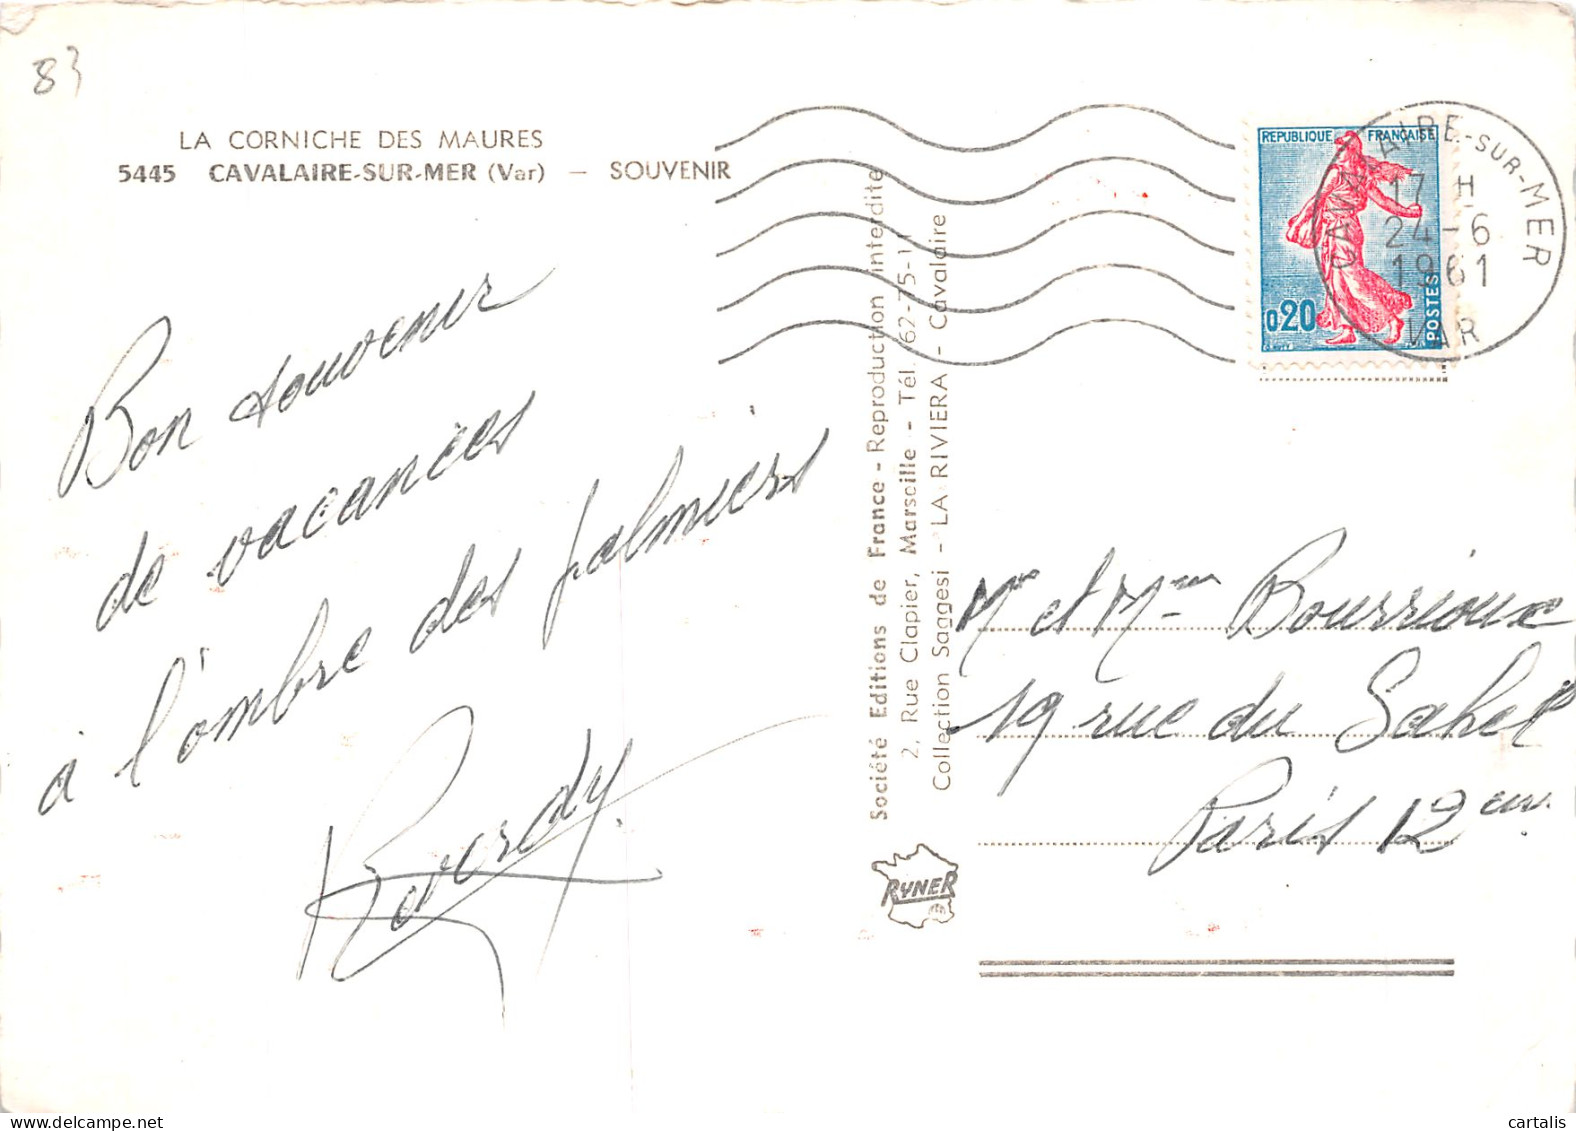 83
LA CORNICHE DES MAURES
5445 CAVALAIRE-SUR-MER (Var) — SOUVENIR
Bon souvenir
de vacances
à l'ombre des palmiers
Société Editions de France - Reproduction interdite
2, Rue Clapier, Marseille - Tél. 62-75-11
Collection Saggesi - LA RIVIERA - Cavalaire
RYNER
REPUBLIQUE FRANÇAISE
0,20
POSTES
CAVALAIRE-SUR-MER
17 H
24-6
1961
VAR
Mr et Mme Bourrioux
19 rue du Sahel
Paris 12 em
cartalis